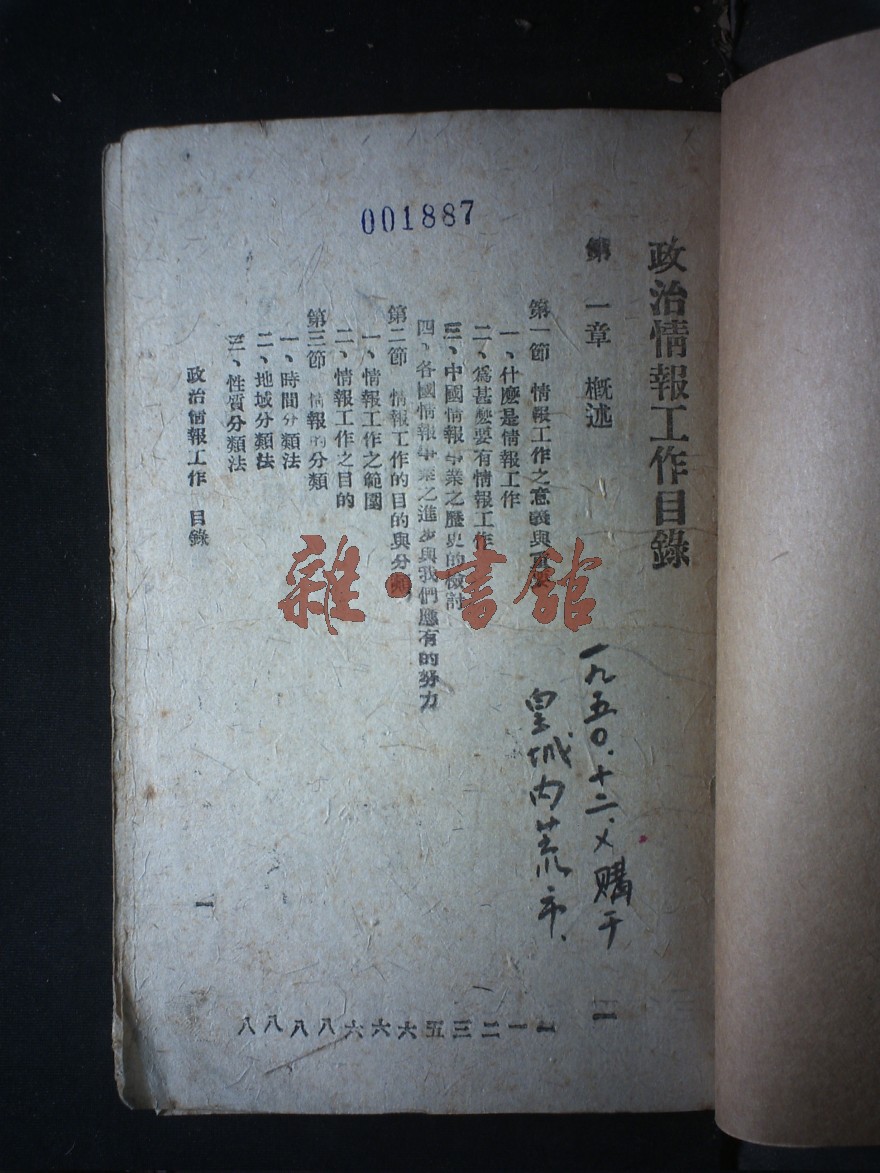 001887
政治情報工作目錄
第一章 概述
第一節 情報工作之意義與重要
一、什麽是情報工作
二、爲甚麽要有情報工作
三、中國情報事業之歷史的檢討
四、各國情報事業之進步與我們應有的努力
第二節 情報工作的目的與分類
一、情報工作之範圍
二、情報工作之目的
第三節 情報的分類
一、時間分類法
二、地域分類法
三、性質分類法
政治情報工作 目錄
一
一九五〇.十二.乂購于
皇城内荒市.
一
一一二三五六六六八八八八八
雜·書舘